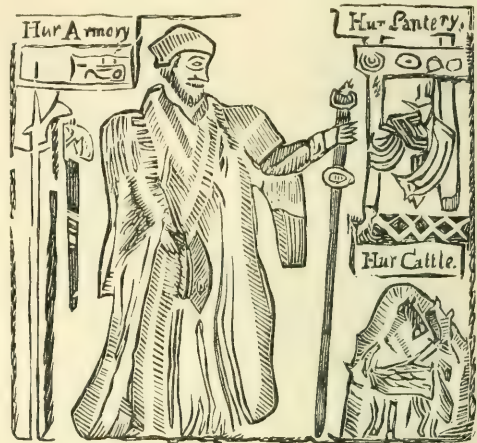 Hur Armory
Hur Pantery,
Hur Cattle.